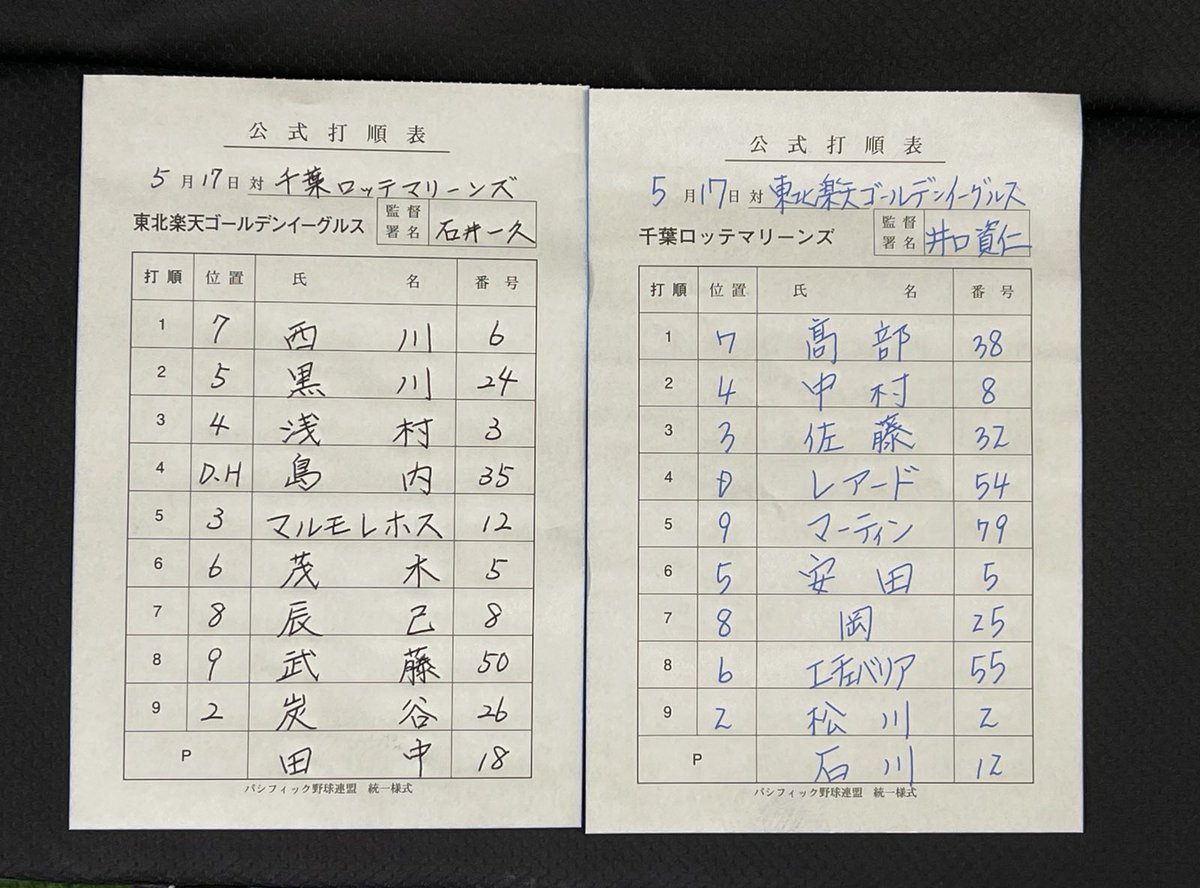 公式打順表
5月17日対 千葉ロッテマリーンズ
東北楽天ゴールデンイーグルス 監督署名 石井一久
打順 位置 氏名 番号
1 7 西川 6
2 5 黒川 24
3 4 浅村 3
4 D.H 島内 35
5 3 マルモレホス 12
6 6 茂木 5
7 8 辰己 8
8 9 武藤 50
9 2 炭谷 26
P 田中 18
パシフィック野球連盟 統一様式
公式打順表
5月17日対 東北楽天ゴールデンイーグルス
千葉ロッテマリーンズ 監督署名 井口資仁
打順 位置 氏名 番号
1 7 髙部 38
2 4 中村 8
3 3 佐藤 32
4 D レアード 54
5 9 マーティン 79
6 5 安田 5
7 8 岡 25
8 6 エチェバリア 55
9 2 松川 2
P 石川 12
パシフィック野球連盟 統一様式